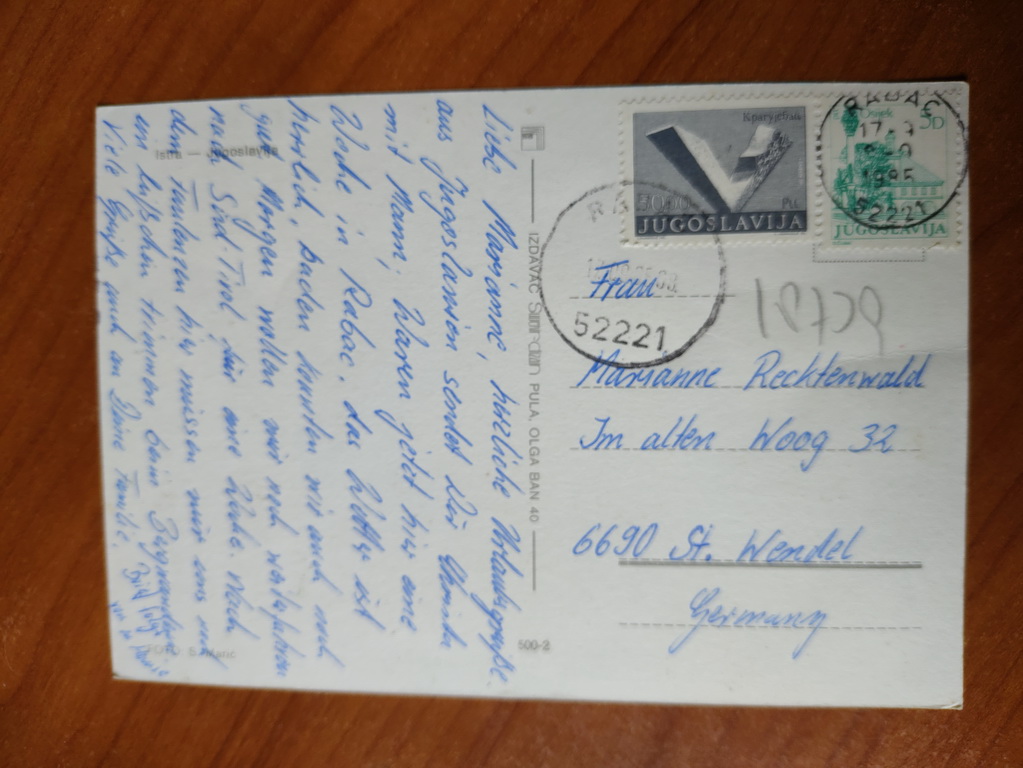 Istra — Jugoslavija
Liebe Marianne, herzliche Urlaubsgrüße
aus Jugoslawien sendet Dir
mit Mann; Waren jetzt hier eine
Woche in Rabac, das Wetter ist
herrlich, baden konnten wir auch noch
gut. Morgen wollen wir noch weiterfahren
nach Süd-Tirol für eine Woche. Nach
dem Faulenzen hier müssen wir uns noch
ein bißchen trimmen beim
Viele Grüße auch an Deine Familie.
FOTO:
IZDAVAČ PULA, OLGA BAN 40
500-2
Крагујевац
Ptt
JUGOSLAVIJA
Osijek
5D
JUGOSLAVIJA
RABAC
1985
52221
52221
Frau
Marianne Recktenwald
Im alten Woog 32
6690 St. Wendel
Germany